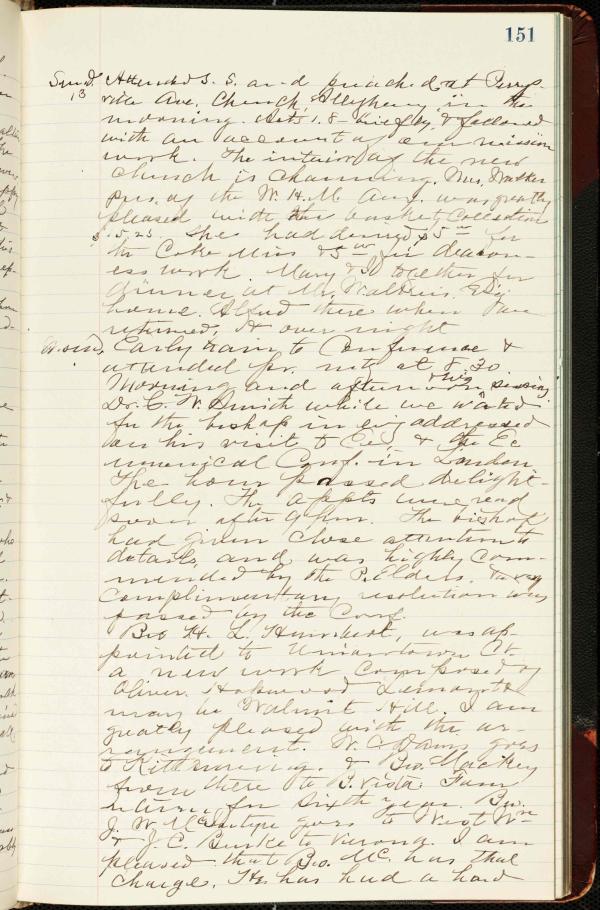 151
Sund. Attended S. S. and preached at Perrys-
13 ville Ave. Church, Allegheny in the
morning. Acts 1.8 - briefly & followed
with an account of our mission
work. The interior of the new
church is charming. Mrs. Walker
pres. of the W. H. M. Aux. was greatly
pleased with the basket collection
$15.25. She had desired $5 for
the Coke Miss & 5 for deacon-
ess work. Mary & I together for
dinner at Mr. Esq
home. Alfred there when we
returned, & over night
Early train to Conference &
attended pr. mtg at 8.30.
Morning and afternoon & evg session.
Dr. C. W. Smith while we waited
for the bishop in evg addressed
on his visit to & the Ec
umenical Conf. in London
The hour passed delight-
fully. The appts were read
soon after 9 p.m. The bishop
had given close attention to
details, and was highly com-
mended by the P. Elders. &
complimentary resolution was
passed by the Conf.
Bro H. L. Humbert, was ap-
pointed to Uniontown Ct.
a new work composed of
Oliver, Hopwood
may be Walnut Hill. I am
greatly pleased with the ar-
rangement. W. goes
to Kittanning. & Bro. Mackey
from there to B. Vista.
return for sixth year. Bro.
J. W. McIntyre goes to West Wn
& J. C. Burke to Verona. I am
pleased that Bro. Mc. has that
charge. He has had a hard